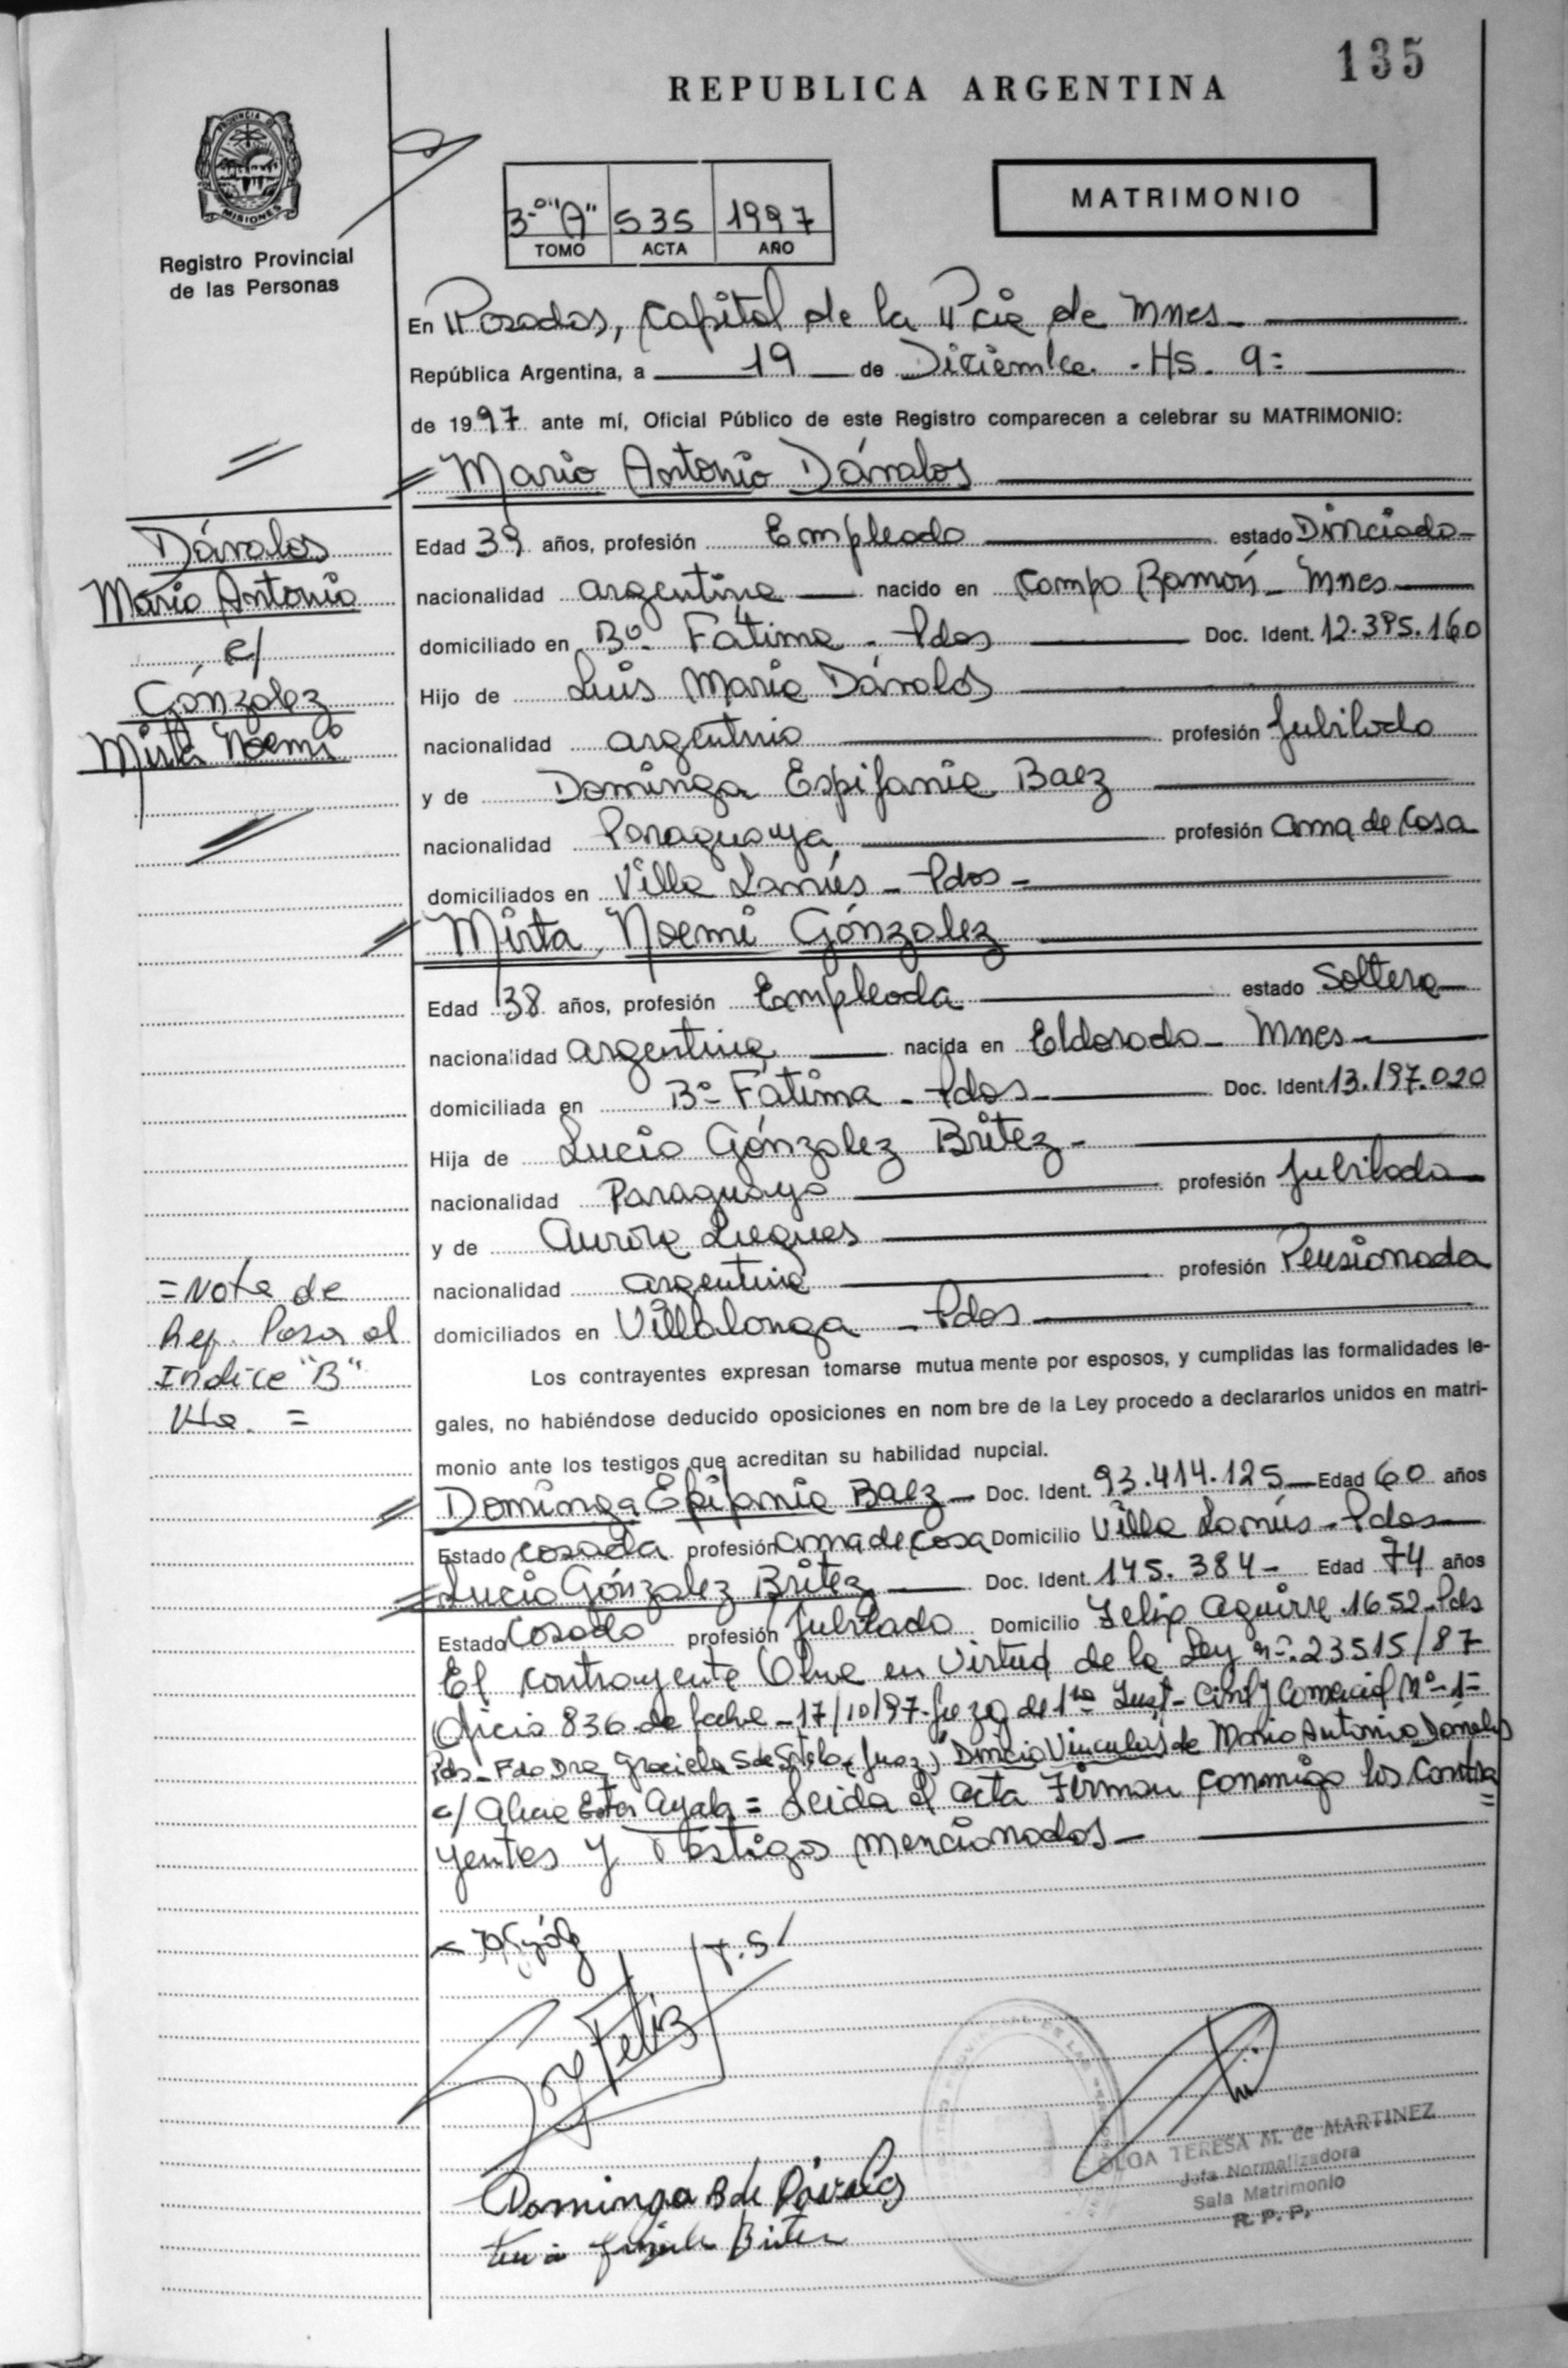 135
REPUBLICA ARGENTINA
PROVINCIA DE
MISIONES
Registro Provincial
de las Personas
3º "A" 535 1997
TOMO ACTA AÑO
MATRIMONIO
En Posadas, Capital de la Pcia de Mnes.
República Argentina, a 19 de Diciembre. - Hs. 9=
de 1997 ante mí, Oficial Público de este Registro comparecen a celebrar su MATRIMONIO:
Mario Antonio Dávalos
Dávalos
Mario Antonio
c/
Gónzález
Mirta Noemi
Edad 39 años, profesión Empleado estado Divorciado-
nacionalidad argentina nacido en Campo Ramón - Mnes
domiciliado en Bº Fátima - Pdas Doc. Ident. 12.395.160
Hijo de Luis Maria Dávalos
nacionalidad argentino profesión Jubilado
y de Dominga Espifania Baez
nacionalidad Paraguaya profesión ama de casa
domiciliados en Villa Lanús - Pdas -
Mirta Noemi Gónzalez
Edad 38 años, profesión Empleada estado Soltera
nacionalidad argentina nacida en Eldorado - Mnes
domiciliada en Bº Fátima - Pdas Doc. Ident. 13.197.020
Hija de Lucio Gónzalez Britez -
nacionalidad Paraguayo profesión Jubilado
y de Aurora Luques
nacionalidad argentina profesión Pensionada
domiciliados en Villalonga - Pdas
= Nota de
Ref. Pasa al
Indice "B"
Vta. =
Los contrayentes expresan tomarse mutua mente por esposos, y cumplidas las formalidades le-
gales, no habiéndose deducido oposiciones en nom bre de la Ley procedo a declararlos unidos en matri-
monio ante los testigos que acreditan su habilidad nupcial.
Dominga Epifania Baez Doc. Ident. 93.414.125 Edad 60 años
Estado Casada profesión ama de casa Domicilio Villa Lanús - Pdas
Lucio Gónzalez Britez Doc. Ident. 145.384 - Edad 74 años
Estado Casado profesión Jubilado Domicilio Felix Aguirre 1652 - Pds
El contrayente Obra en Virtud de la Ley nº 23515/87
Oficio 836 de fecha - 17/10/97 - Juzg de 1ra Inst - Civil y Comercial Nº 1=
Pds - Fdo Dra Graciela S de Sotelo (Juez) Divorcio Vincular de Mario Antonio Dávalos
c/ Alicia Ester Ayala = Leida el acta Firman conmigo los Contra
yentes y Testigos mencionados -
T.S.
Dominga B de Dávalos
Britez
OLGA TERESA M. de MARTINEZ
Jefa Normalizadora
Sala Matrimonio
R. P. P.